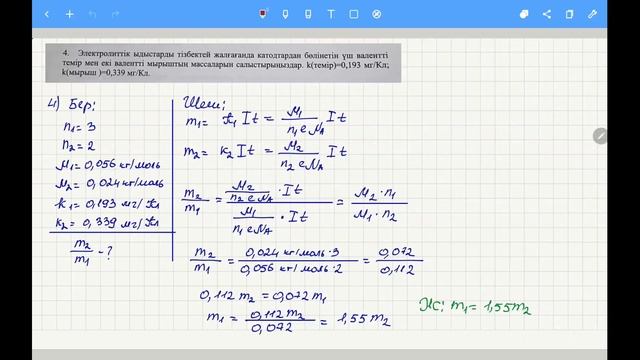 4. Электролиттік ыдыстарды тізбектей жалғағанда катодтардан бөлінетін үш валентті
темір мен екі валентті мырыштың массаларын салыстырыңыздар. k(темір)=0,193 мг/Кл;
k(мырыш )=0,339 мг/Кл.
4) Бер:
n₁= 3
n₂= 2
M₁= 0,056 кг/моль
M₂= 0,024 кг/моль
k₁= 0,193 мг/Кл
k₂= 0,339 мг/Кл
m₂/m₁ - ?
Шешу:
m₁= k₁ I t = M₁/(n₁ e N_A) I t
m₂= k₂ I t = M₂/(n₂ e N_A) I t
m₂/m₁ = (M₂/(n₂ e N_A) · I t)/(M₁/(n₁ e N_A) · I t) = (M₂ · n₁)/(M₁ · n₂)
m₂/m₁ = (0,024 кг/моль · 3)/(0,056 кг/моль · 2) = 0,072/0,112
0,112 m₂ = 0,072 m₁
m₁ = 0,112 m₂/0,072 = 1,55 m₂
Ж: m₁ = 1,55 m₂